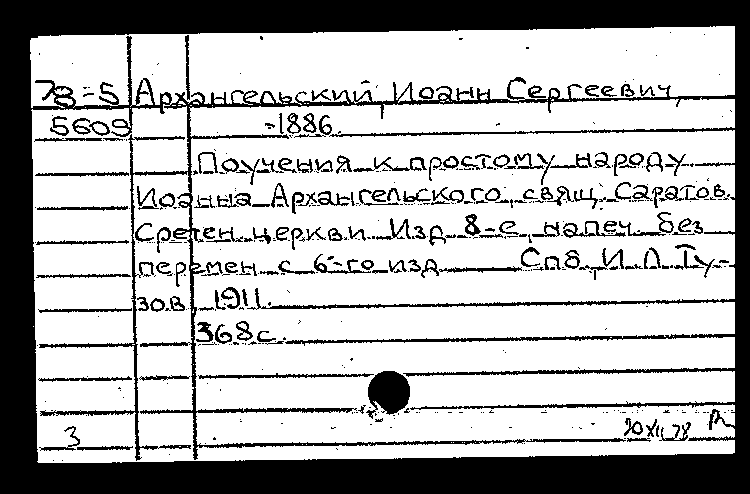 78-5 Архангельский, Иоанн Сергеевич,
5609 -1886.
Поучения к простому народу
Иоанна Архангельского, свящ. Саратов.
Сретен. церкви. Изд. 8-е, напеч. без
перемен с 6-го изд. Спб., И. Л. Ту-
зов, 1911.
368 с.
3 20 XII 78